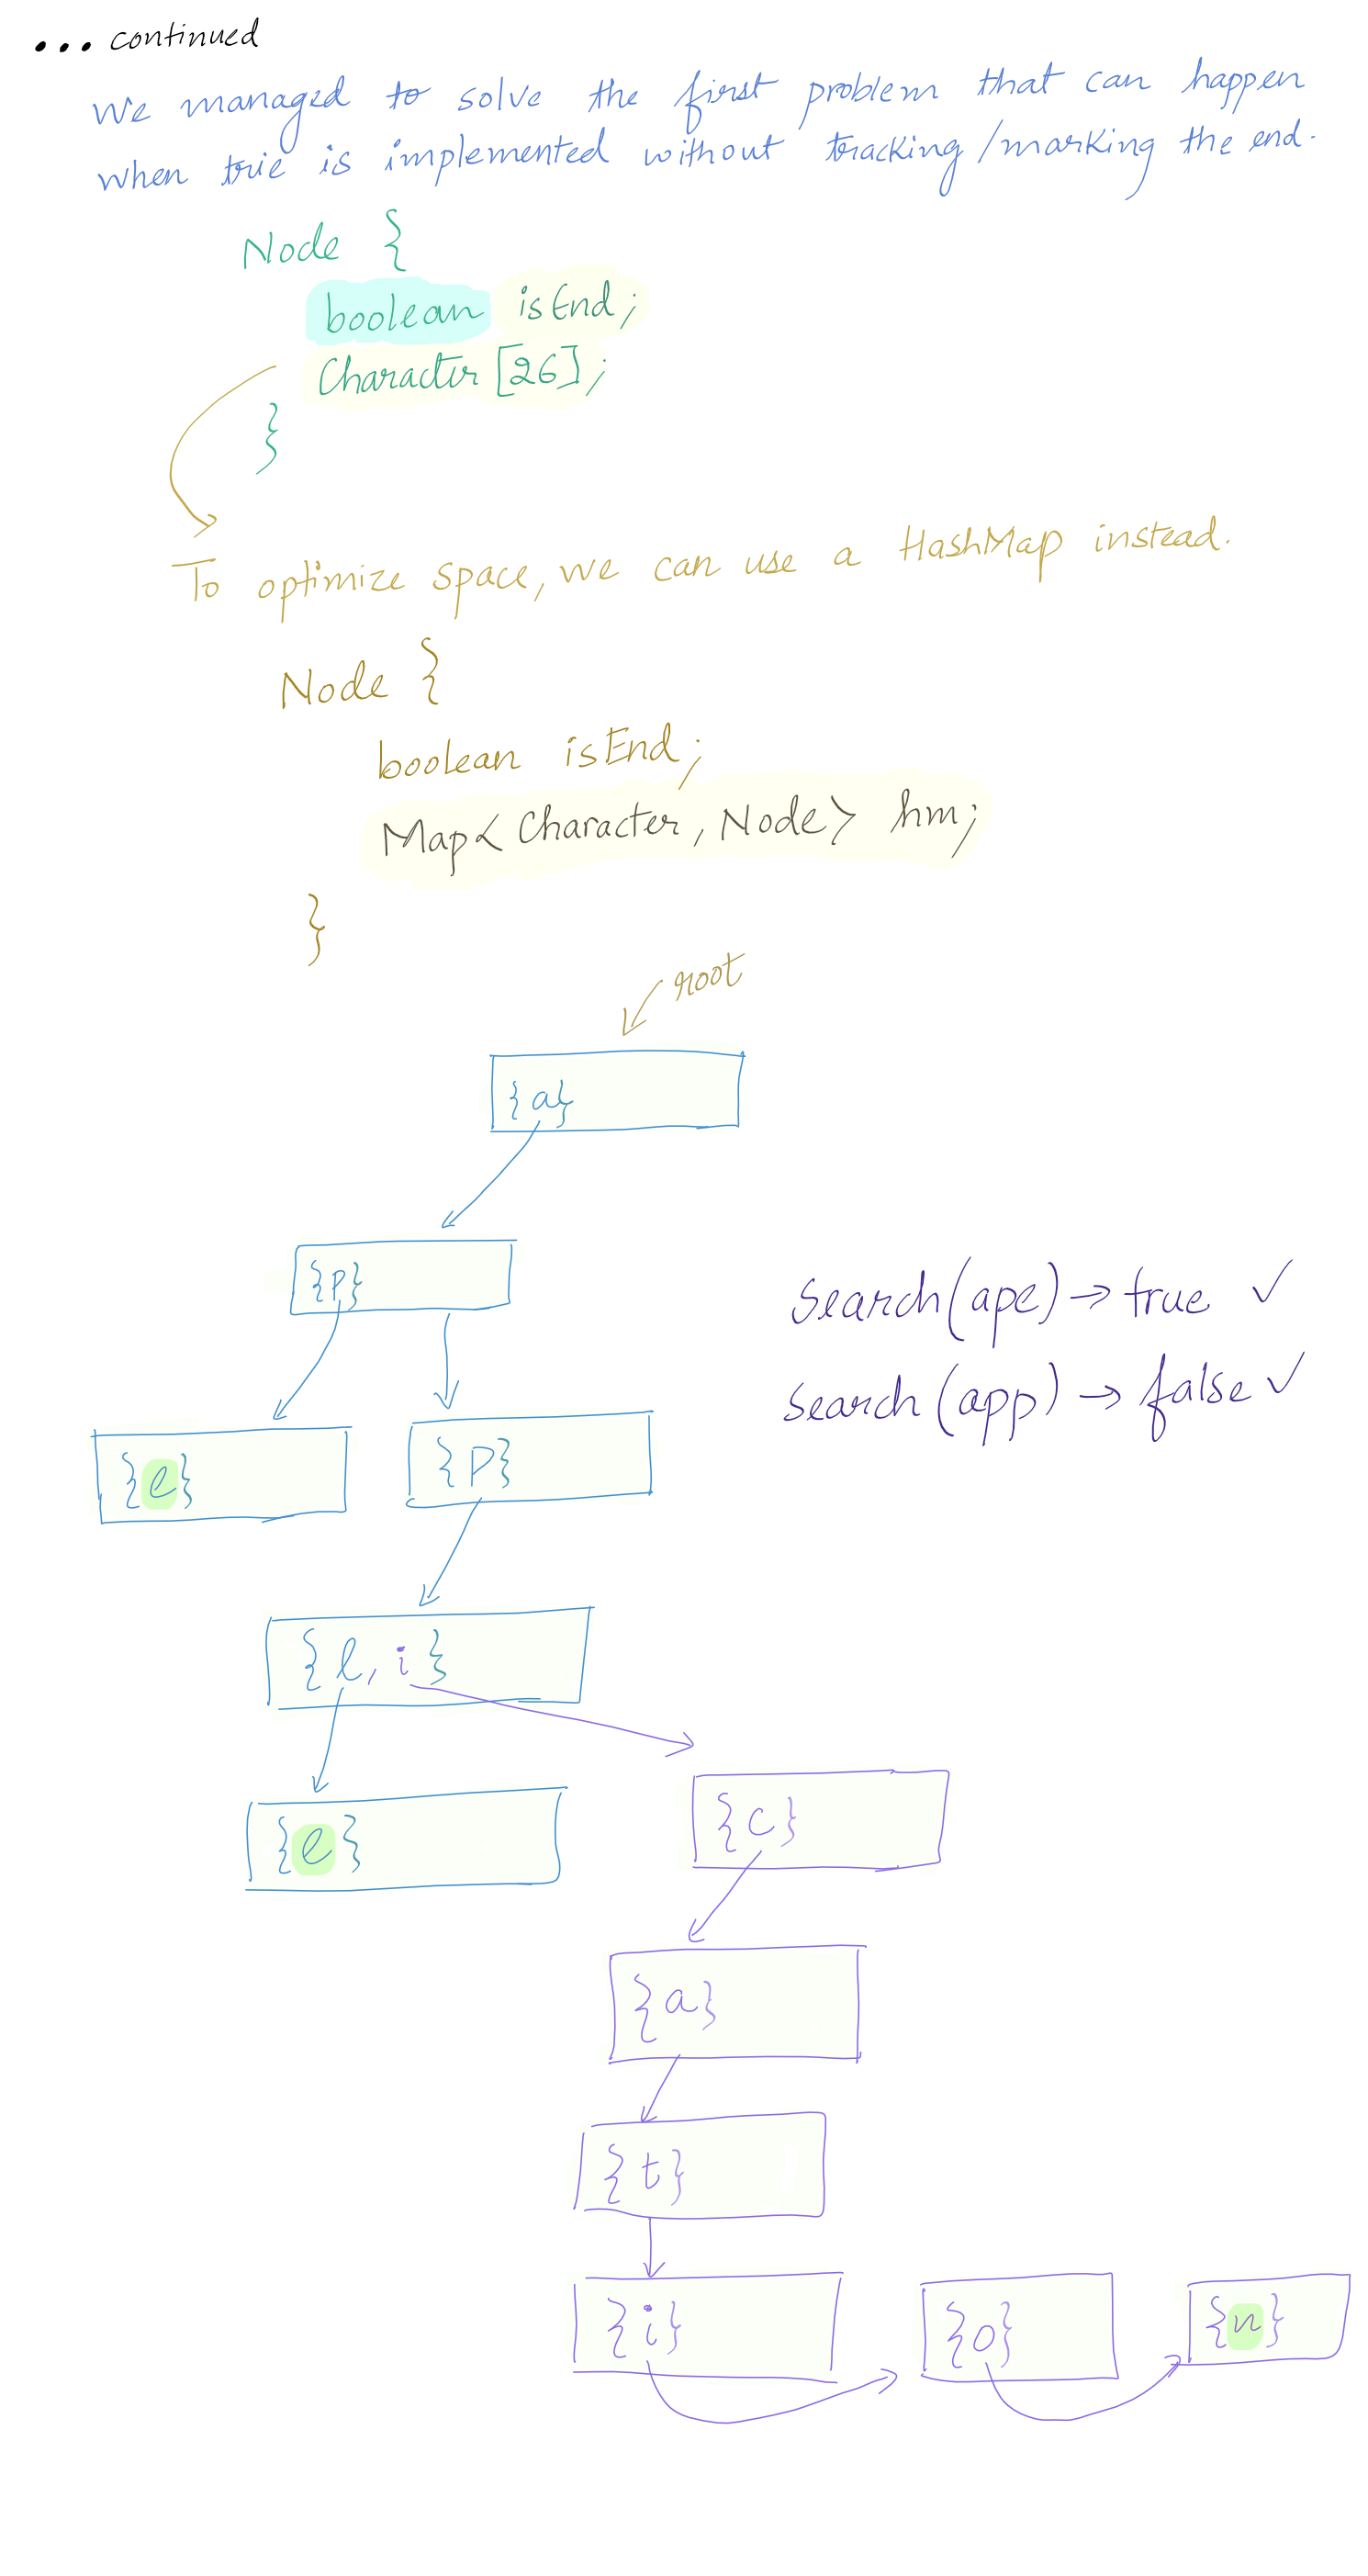 ... continued
We managed to solve the first problem that can happen
when trie is implemented without tracking/marking the end.
Node {
boolean isEnd;
Character[26];
}
To optimize space, we can use a HashMap instead.
Node {
boolean isEnd;
Map<Character, Node> hm;
}
root
{a}
{p}
search(ape) → true ✓
search(app) → false ✓
{e} {p}
{l, i}
{e} {c}
{a}
{t}
{i} {o} {n}